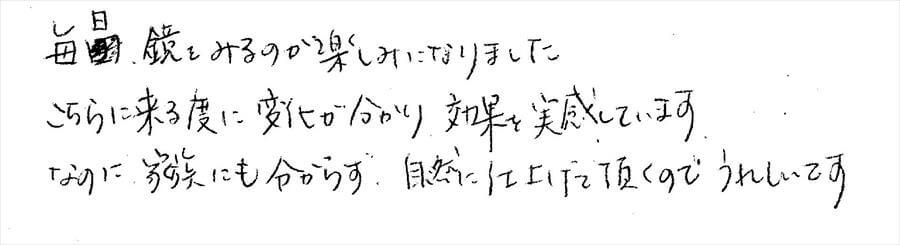 毎日、鏡をみるのが楽しみになりました
こちらに来る度に変化が分かり効果を実感しています
なのに家族にも分からず、自然に仕上げて頂くのでうれしいです